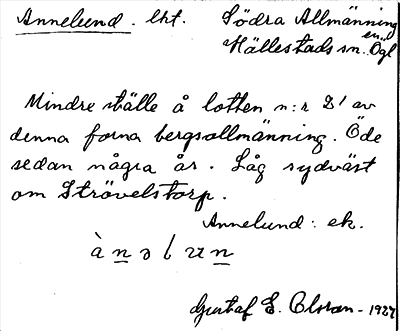 Annelund. lht. Södra Allmänningen
Hällestads sn. Ögl
Mindre ställe å lotten n:r 8' av
denna forna bergsallmänning. Öde
sedan några år. Låg sydväst
om Strövelstorp.
Annelund: ek.
Gustaf E. Olsson - 1927